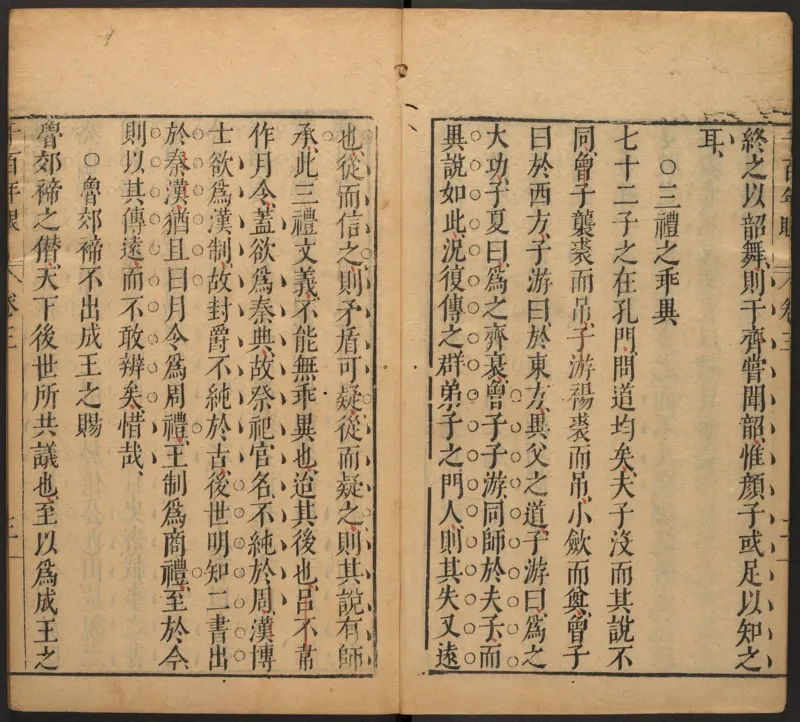 終之以韶舞則于齊嘗聞韶惟顏子或足以知之
耳
○三禮之乖異
七十二子之在孔門問道均矣夫子沒而其說不
同曾子襲裘而吊子游裼裘而吊小歛而奠曾子
曰於西方子游曰於東方異父之道子游曰爲之
大功子夏曰爲之齊衰曾子子游同師於夫子而
異說如此況復傳之群弟子之門人則其失又遠
也從而信之則矛盾可疑從而疑之則其說有師
承此三禮文義不能無乖異也迨其後也呂不韋
作月令蓋欲爲秦典故祭祀官名不純於周漢博
士欲爲漢制故封爵不純於古後世明知二書出
於秦漢猶且曰月令爲周禮王制爲商禮至於今
則以其傳遠而不敢辨矣惜哉
○魯郊禘不出成王之賜
魯郊禘之僭天下後世所共議也至以爲成王之
千百年眼 卷三 三